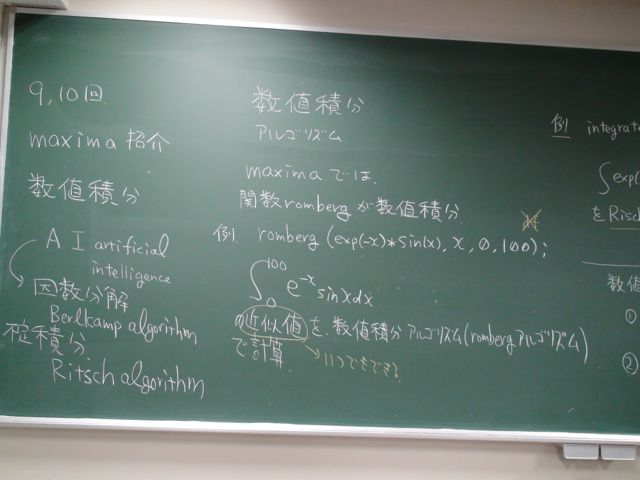 9,10回
maxima 紹介
数値積分
A I artificial
intelligence
因数分解
Berlkamp algorithm
定積分
Ritsch algorithm
数値積分
アルゴリズム
maxima では、
関数 romberg が数値積分
例 romberg (exp(-x)*sin(x), x, 0, 100);
∫₀¹⁰⁰ e⁻ˣ sinxdx
の近似値を、数値積分アルゴリズム(rombergアルゴリズム)
で計算
いつでもできる
例 integrat
∫exp(
をRisc
数値
①
②